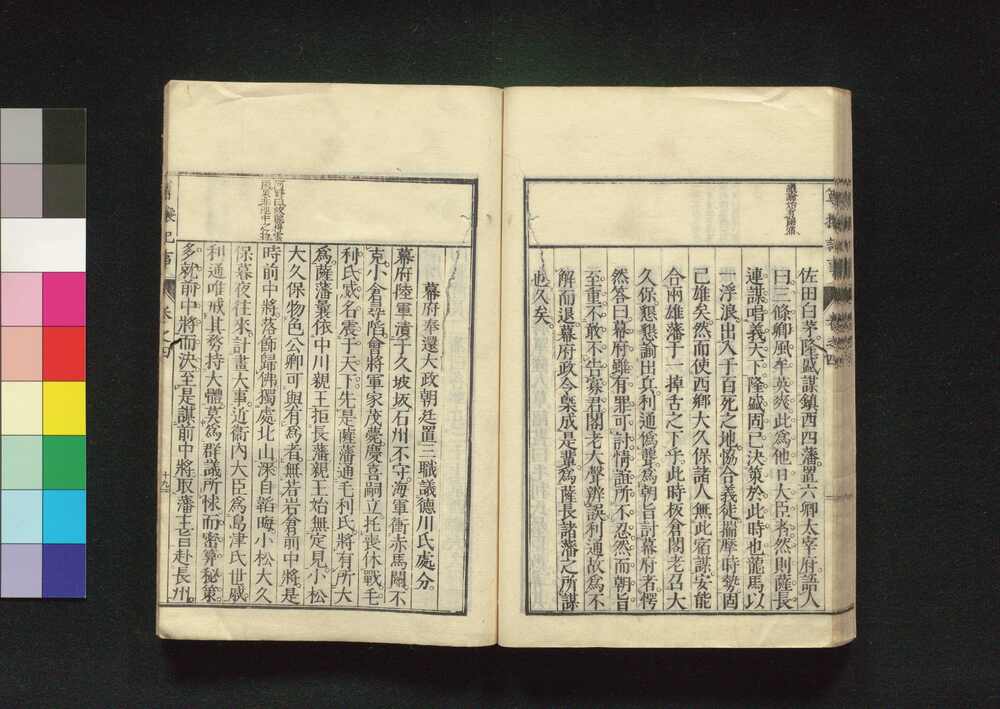 佐田白茅。隆盛謀鎮西四藩。置六卿大宰府。語人
曰。三條卿風牟英爽。此爲他日大臣者。然則薩長
連謀。唱義天下。隆盛固已決策於此時也。龍馬以
一浮浪。出入于百死之地。協合義徒。揣摩時勢。固
已雄矣。然而使西鄕大久保諸人無此宿謀。安能
合兩雄藩于一掉舌之下乎。此時板倉閣老召大
久保。懇懇諭出兵。利通僞聾。爲朝旨討幕府者。愕
然答曰。幕府雖有罪可討。情誼所不忍。然而朝旨
至重。不敢不告寡君。閣老大聲辨誤。利通故爲不
解而退。幕府政令。槩成是輩。爲薩長諸藩之所謀
也久矣。
幕府奉還大政朝廷置三職議德川氏處分。
幕府陸軍潰于久坡坂。石州不守。海軍衝赤馬關不
克。小倉尋陷。會將軍家茂薨。慶喜嗣立。托喪休戰。毛
利氏威名。震于天下。先是薩藩通毛利氏。將有所大
爲。薩藩曩依中川親王拒長藩。親王始無定見。小松
大久保物色公卿可與有爲者。無若岩倉前中將。是
時前中將落飾歸佛。獨處北山深自韜晦。小松大久
保幕夜往來。計畫大事。近衞内大臣爲島津氏世戚。
利通唯戒其務持大體莫爲群議所怵。而密筭秘策。
多就前中將而決。至是謀前中將。取藩主旨赴長州。
卷之四
十九